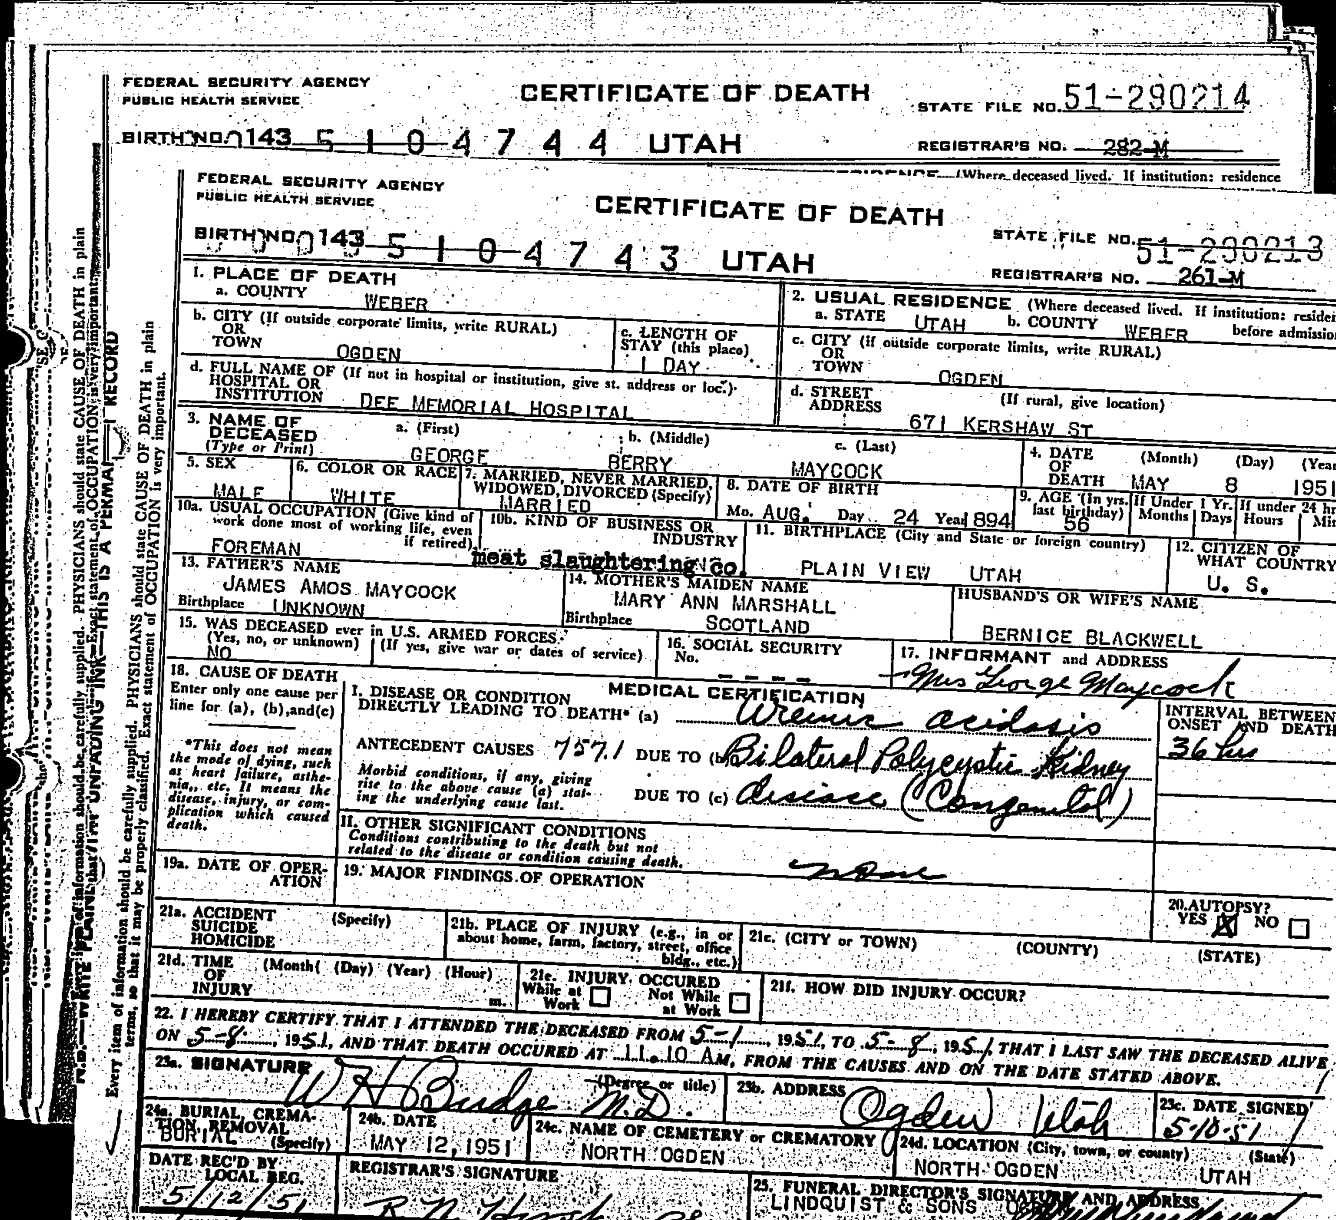 FEDERAL SECURITY AGENCY
PUBLIC HEALTH SERVICE
CERTIFICATE OF DEATH
STATE FILE NO. 51-290214
BIRTH NO. 143 5 1 0 4 7 4 4 UTAH
REGISTRAR'S NO. 282-M
(Where deceased lived. If institution: residence
FEDERAL SECURITY AGENCY
PUBLIC HEALTH SERVICE
CERTIFICATE OF DEATH
STATE FILE NO. 51-290213
BIRTH NO. 143 5 1 0 4 7 4 3 UTAH
REGISTRAR'S NO. 261-M
1. PLACE OF DEATH
a. COUNTY WEBER
2. USUAL RESIDENCE (Where deceased lived. If institution:
a. STATE UTAH b. COUNTY WEBER before
b. CITY (If outside corporate limits, write RURAL)
OR
TOWN OGDEN
c. LENGTH OF
STAY (this place)
1 DAY
c. CITY (if outside corporate limits, write RURAL)
OR
TOWN OGDEN
d. FULL NAME OF (If not in hospital or institution, give st. address or loc.)
HOSPITAL OR
INSTITUTION DEE MEMORIAL HOSPITAL
d. STREET (If rural, give location)
ADDRESS 671 KERSHAW ST
3. NAME OF
DECEASED
(Type or Print)
a. (First) b. (Middle) c. (Last)
GEORGE BERRY MAYCOCK
4. DATE (Month) (Day)
OF
DEATH MAY 8 1951
5. SEX
MALE
6. COLOR OR RACE
WHITE
7. MARRIED, NEVER MARRIED,
WIDOWED, DIVORCED (Specify)
MARRIED
8. DATE OF BIRTH
Mo. AUG. Day 24 Year 1894
9. AGE (in yrs. last birthday)
56
If Under 1 Yr.
Months Days
If under 24
Hours
10a. USUAL OCCUPATION (Give kind of
work done most of working life, even
if retired)
FOREMAN
10b. KIND OF BUSINESS OR
INDUSTRY
meat slaughtering co.
11. BIRTHPLACE (City and State or foreign country)
PLAIN VIEW UTAH
12. CITIZEN OF
WHAT COUNTRY
U. S.
13. FATHER'S NAME
JAMES AMOS MAYCOCK
Birthplace UNKNOWN
14. MOTHER'S MAIDEN NAME
MARY ANN MARSHALL
Birthplace SCOTLAND
HUSBAND'S OR WIFE'S NAME
BERNICE BLACKWELL
15. WAS DECEASED ever in U.S. ARMED FORCES.
(Yes, no, or unknown) (If yes, give war or dates of service)
NO
16. SOCIAL SECURITY
No. - - - -
17. INFORMANT and ADDRESS
Mrs George Maycock
18. CAUSE OF DEATH
Enter only one cause per
line for (a), (b), and (c)
*This does not mean
the mode of dying, such
as heart failure, asthe-
nia, etc. It means the
disease, injury, or com-
plication which caused
death.
MEDICAL CERTIFICATION
I. DISEASE OR CONDITION
DIRECTLY LEADING TO DEATH* (a) Uremic acidosis
ANTECEDENT CAUSES 757.1 DUE TO (b) Bilateral Polycystic Kidney
Morbid conditions, if any, giving
rise to the above cause (a) stat-
ing the underlying cause last.
DUE TO (c) disease (Congenital)
INTERVAL BETWEEN
ONSET AND DEATH
36 hrs
II. OTHER SIGNIFICANT CONDITIONS
Conditions contributing to the death but not
related to the disease or condition causing death.
none
19a. DATE OF OPER-
ATION
19. MAJOR FINDINGS OF OPERATION
20. AUTOPSY?
YES X NO
21a. ACCIDENT (Specify)
SUICIDE
HOMICIDE
21b. PLACE OF INJURY (e.g., in or
about home, farm, factory, street, office
bldg., etc.)
21c. (CITY or TOWN) (COUNTY) (STATE)
21d. TIME (Month) (Day) (Year) (Hour)
OF
INJURY m.
21e. INJURY OCCURED
While at Work Not While at Work
21f. HOW DID INJURY OCCUR?
22. I HEREBY CERTIFY THAT I ATTENDED THE DECEASED FROM 5-1, 1951, TO 5-8, 1951, THAT I LAST SAW THE DECEASED ALIVE
ON 5-8, 1951, AND THAT DEATH OCCURED AT 11.10 AM, FROM THE CAUSES AND ON THE DATE STATED ABOVE.
23a. SIGNATURE (Degree or title)
W H Budge M.D.
23b. ADDRESS
Ogden Utah
23c. DATE SIGNED
5-10-51
24a. BURIAL, CREMA-
TION, REMOVAL
(Specify)
BURIAL
24b. DATE
MAY 12, 1951
24c. NAME OF CEMETERY or CREMATORY
NORTH OGDEN
24d. LOCATION (City, town, or county) (State)
NORTH OGDEN UTAH
DATE REC'D BY
LOCAL REG.
5/12/51
REGISTRAR'S SIGNATURE
25. FUNERAL DIRECTOR'S SIGNATURE AND ADDRESS
LINDQUIST & SONS
Every item of information should be carefully supplied. PHYSICIANS should state CAUSE OF DEATH in plain
terms, so that it may be properly classified. Exact statement of OCCUPATION is very important.
THIS IS A RECORD